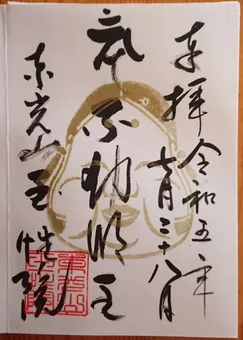 奉拝 令和五年
七月二十八日
赤不動明王
東光山 玉性院